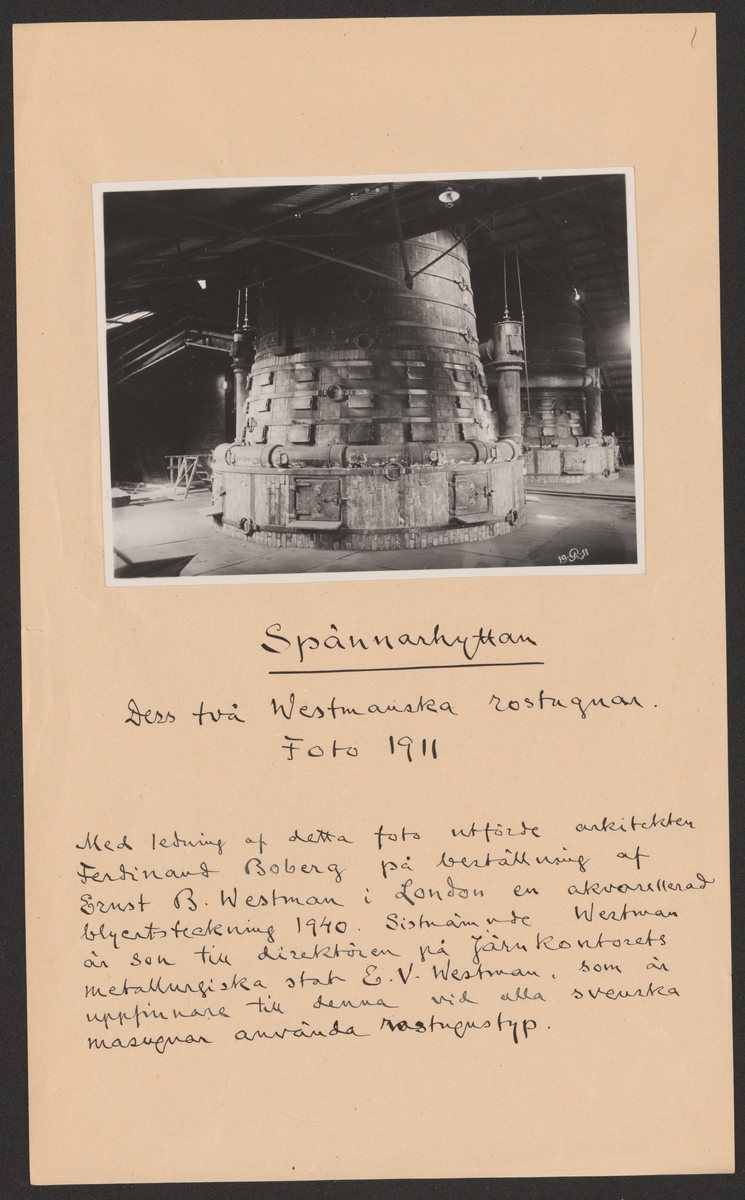 19 R 11
Spännarhyttan
Dess två Westmanska rostugnar.
Foto 1911
Med ledning af detta foto utförde arkitekten
Ferdinand Boberg på beställning af
Ernst B. Westman i London en akvarellerad
blyertsteckning 1940. Sistnämnde Westman
är son till direktören på Järnkontorets
metallurgiska stat E. V. Westman, som är
uppfinnare till denna vid alla svenska
masugnar använda rostugnstyp.